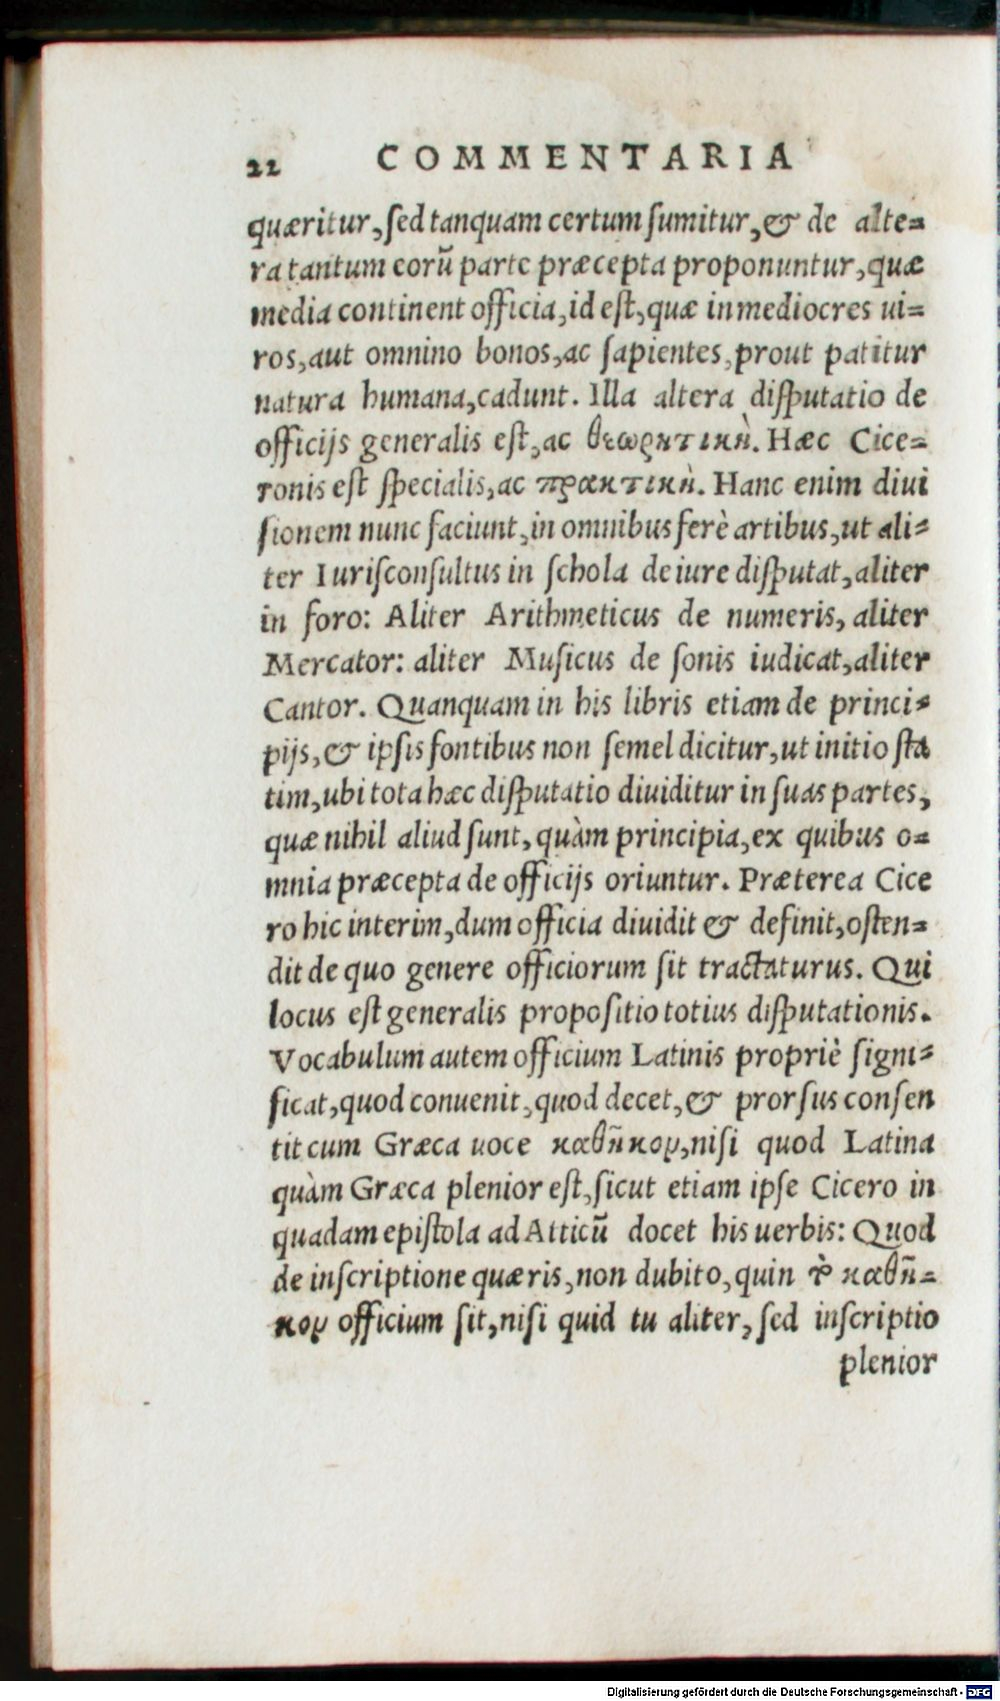 22 COMMENTARIA
quæritur, sed tanquam certum sumitur, & de alte=
ra tantum eorū parte præcepta proponuntur, quæ
media continent officia, id est, quæ in mediocres ui=
ros, aut omnino bonos, ac sapientes, prout patitur
natura humana, cadunt. Illa altera disputatio de
officijs generalis est, ac θεωρητικὴ. Hæc Cice=
ronis est specialis, ac πρακτικὴ. Hanc enim diui
sionem nunc faciunt, in omnibus ferè artibus, ut ali=
ter Iurisconsultus in schola de iure disputat, aliter
in foro: Aliter Arithmeticus de numeris, aliter
Mercator: aliter Musicus de sonis iudicat, aliter
Cantor. Quanquam in his libris etiam de princi=
pijs, & ipsis fontibus non semel dicitur, ut initio sta
tim, ubi tota hæc disputatio diuiditur in suas partes,
quæ nihil aliud sunt, quàm principia, ex quibus o=
mnia præcepta de officijs oriuntur. Præterea Cice
ro hic interim, dum officia diuidit & definit, osten=
dit de quo genere officiorum sit tractaturus. Qui
locus est generalis propositio totius disputationis.
Vocabulum autem officium Latinis propriè signi=
ficat, quod conuenit, quod decet, & prorsus consen
tit cum Græca uoce καθῆκον, nisi quod Latina
quàm Græca plenior est, sicut etiam ipse Cicero in
quadam epistola ad Atticū docet his uerbis: Quod
de inscriptione quæris, non dubito, quin τὸ καθῆ=
κον officium sit, nisi quid tu aliter, sed inscriptio
plenior
Digitalisierung gefördert durch die Deutsche Forschungsgemeinschaft - DFG